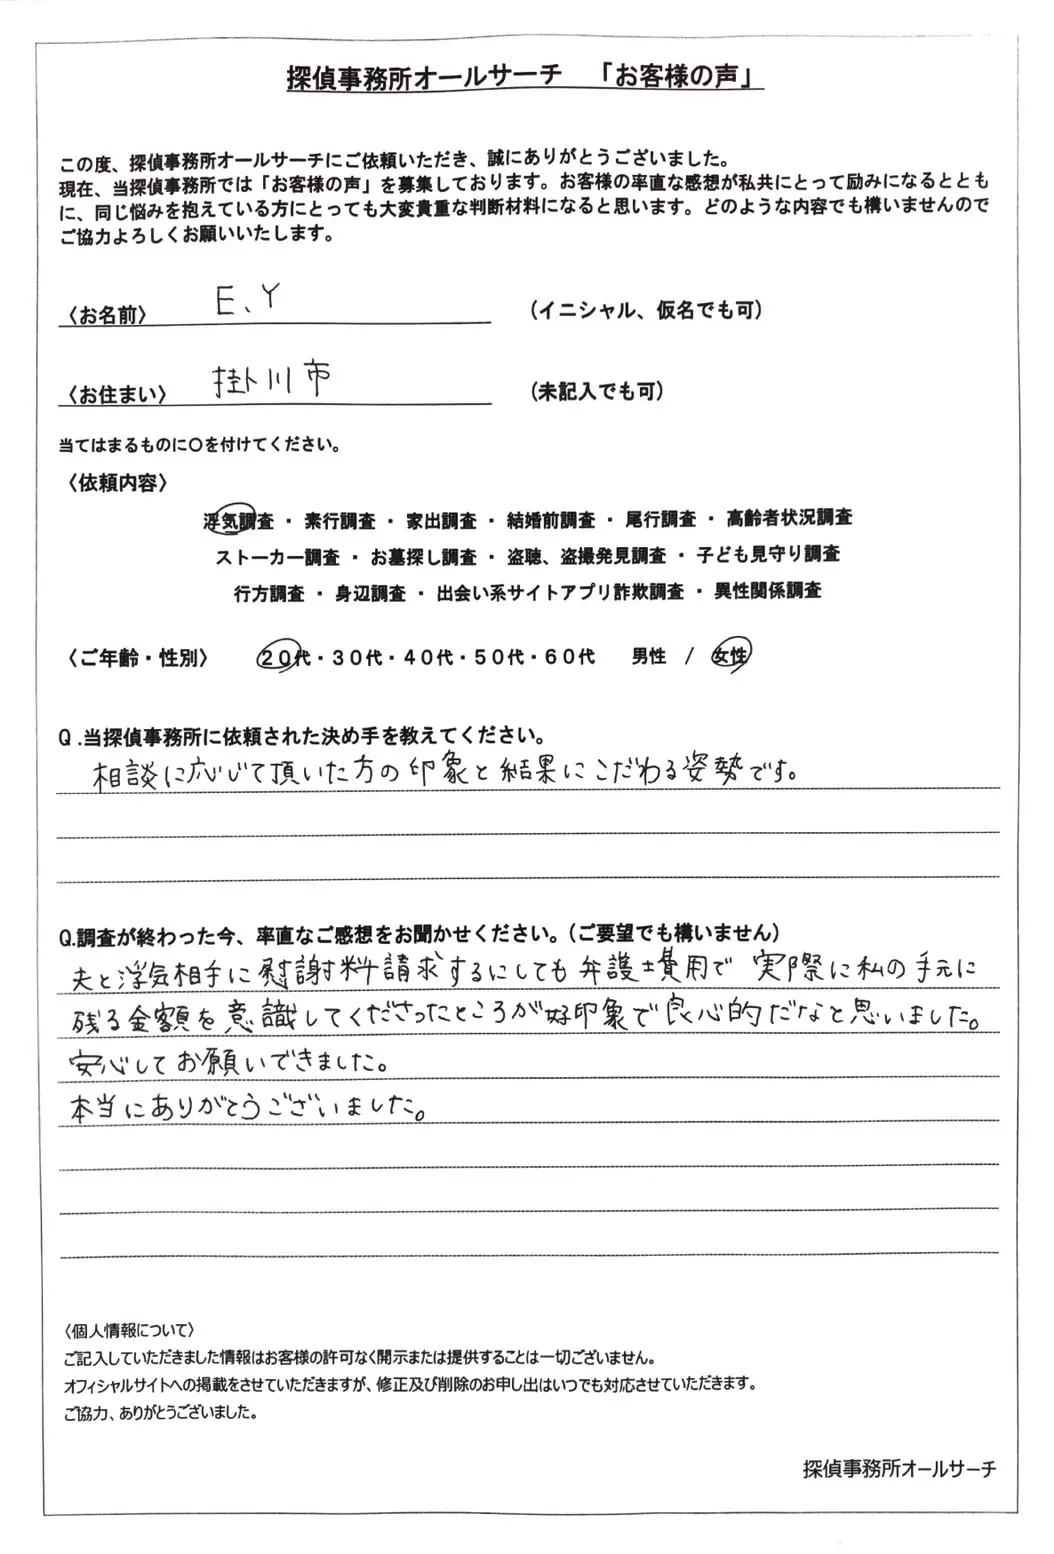 探偵事務所オールサーチ 「お客様の声」
この度、探偵事務所オールサーチにご依頼いただき、誠にありがとうございました。
現在、当探偵事務所では「お客様の声」を募集しております。お客様の率直な感想が私共にとって励みになるととも
に、同じ悩みを抱えている方にとっても大変貴重な判断材料になると思います。どのような内容でも構いませんので
ご協力よろしくお願いいたします。
〈お名前〉 E、Y (イニシャル、仮名でも可)
〈お住まい〉 掛川市 (未記入でも可)
当てはまるものに〇を付けてください。
〈依頼内容〉
浮気調査 ・ 素行調査 ・ 家出調査 ・ 結婚前調査 ・ 尾行調査 ・ 高齢者状況調査
ストーカー調査 ・ お墓探し調査 ・ 盗聴、盗撮発見調査 ・ 子ども見守り調査
行方調査 ・ 身辺調査 ・ 出会い系サイトアプリ詐欺調査 ・ 異性関係調査
〈ご年齢・性別〉 20代・30代・40代・50代・60代 男性 / 女性
Q.当探偵事務所に依頼された決め手を教えてください。
相談に応じて頂いた方の印象と結果にこだわる姿勢です。
Q.調査が終わった今、率直なご感想をお聞かせください。(ご要望でも構いません)
夫と浮気相手に慰謝料請求するにしても弁護士費用で実際に私の手元に
残る金額を意識してくださったところが好印象で良心的だなと思いました。
安心してお願いできました。
本当にありがとうございました。
〈個人情報について〉
ご記入していただきました情報はお客様の許可なく開示または提供することは一切ございません。
オフィシャルサイトへの掲載をさせていただきますが、修正及び削除のお申し出はいつでも対応させていただきます。
ご協力、ありがとうございました。
探偵事務所オールサーチ